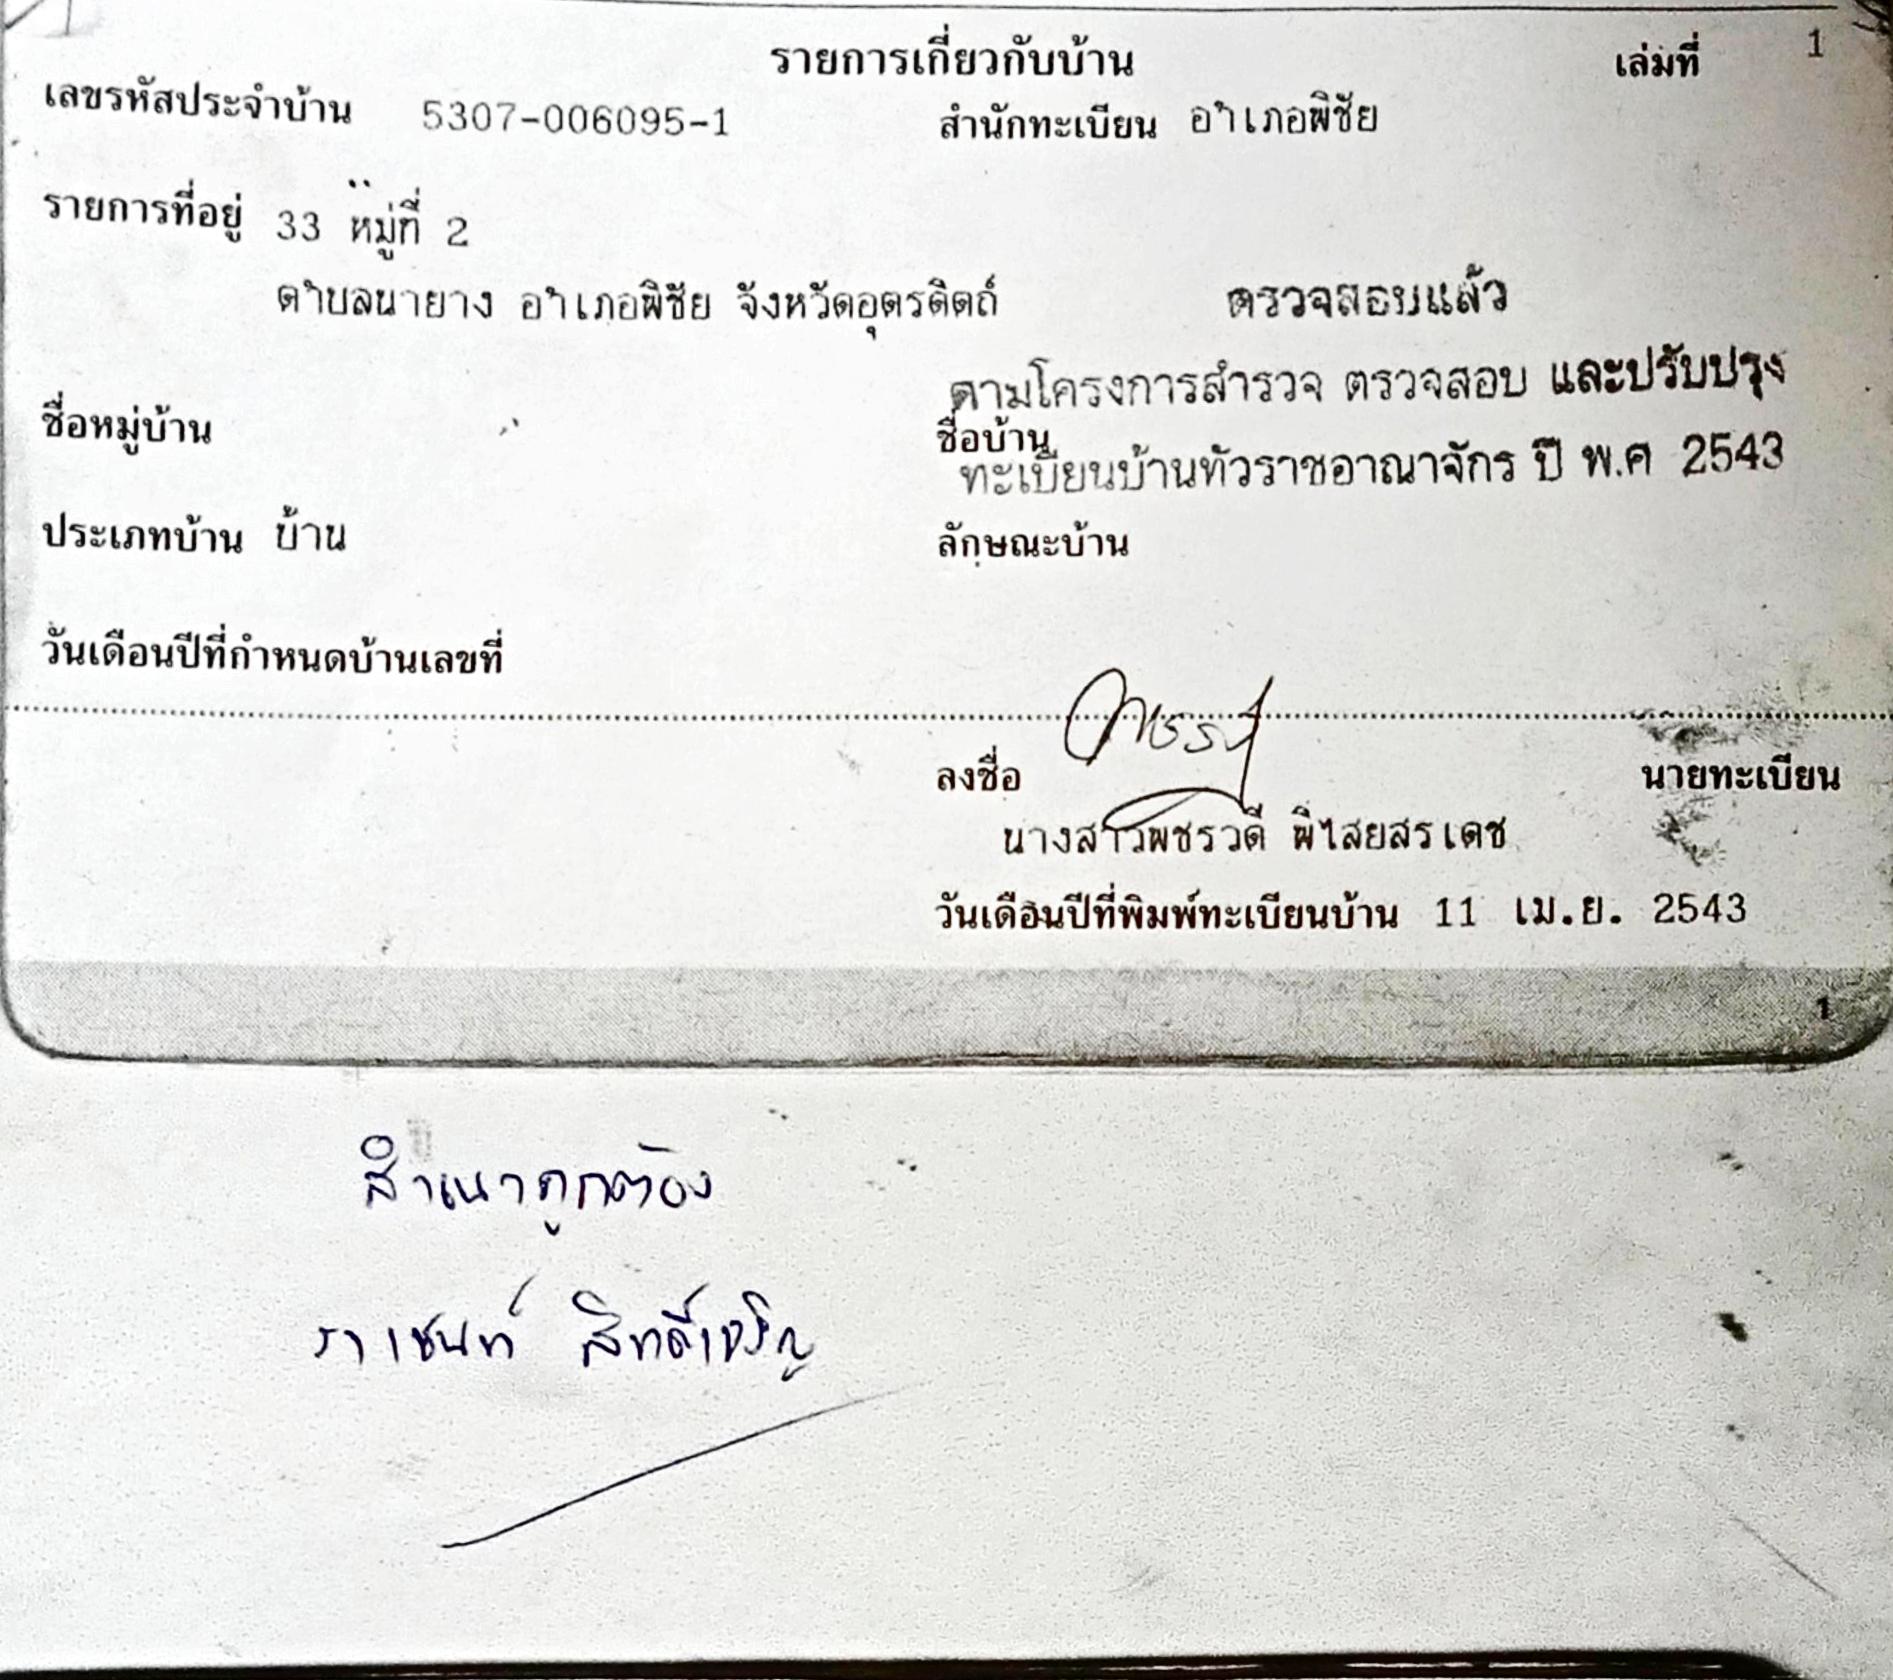 รายการเกี่ยวกับบ้าน เล่มที่ 1
เลขรหัสประจำบ้าน 5307-006095-1 สำนักทะเบียน อำเภอพิชัย
รายการที่อยู่ 33 หมู่ที่ 2
ตำบลนายาง อำเภอพิชัย จังหวัดอุตรดิตถ์ ตรวจสอบแล้ว
ตามโครงการสำรวจ ตรวจสอบ และปรับปรุง
ชื่อหมู่บ้าน ชื่อบ้าน
ทะเบียนบ้านทั่วราชอาณาจักร ปี พ.ศ 2543
ประเภทบ้าน บ้าน ลักษณะบ้าน
วันเดือนปีที่กำหนดบ้านเลขที่
ลงชื่อ นายทะเบียน
นางสาวพชรวดี พิไสยสรเดช
วันเดือนปีที่พิมพ์ทะเบียนบ้าน 11 เม.ย. 2543
1
สำเนาถูกต้อง
ราเชนท์ สิทดิ์เจริญ